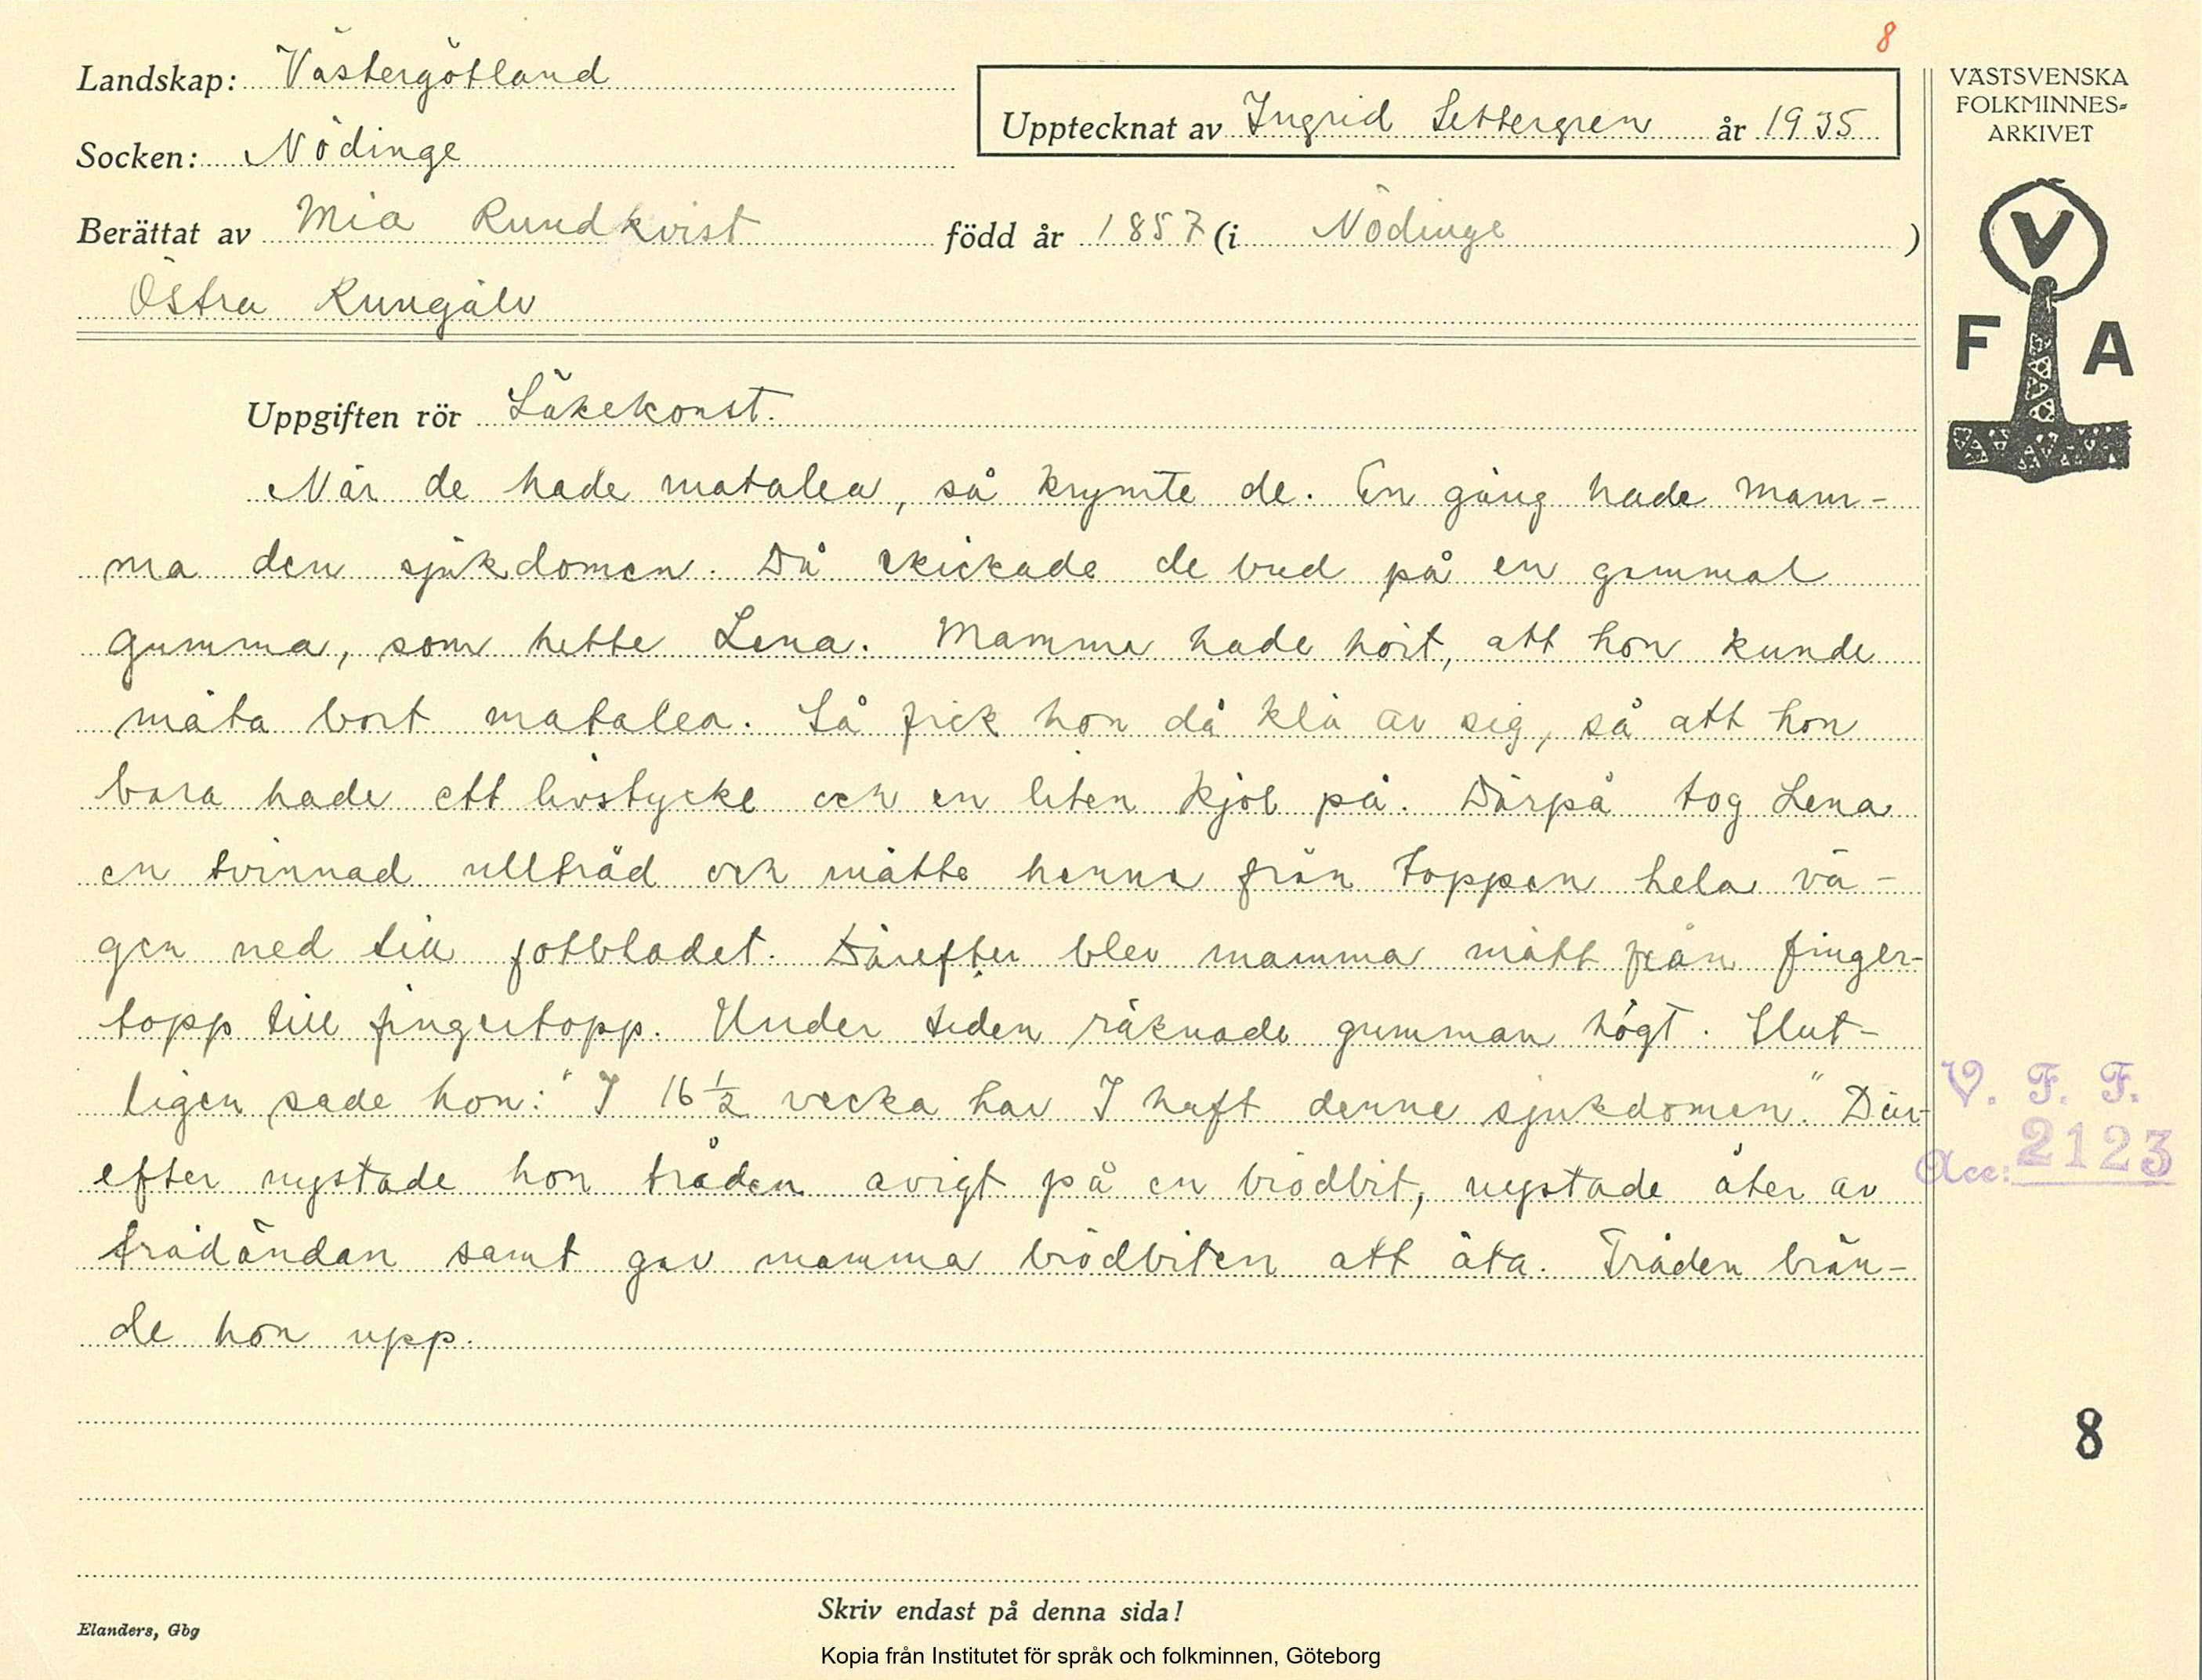 8
Landskap: Västergötland
Socken: Nödinge
Upptecknat av Ingrid Settergren år 1935
Berättat av Mia Rundkvist född år 1857 (i Nödinge )
Östra Kungälv
VÄSTSVENSKA
FOLKMINNES-
ARKIVET
V
F A
Uppgiften rör Läkekonst.
När de hade matalea, så krymte de. En gång hade mam-
ma den sjukdomen. Då skickade de bud på en gammal
gumma, som hette Lena. Mamma hade hört, att hon kunde
mäta bort matalea. Så fick hon då klä av sig, så att hon
bara hade ett livstycke och en liten kjol på. Därpå tog Lena
en tvinnad ulltråd och mätte henne från toppen hela vä-
gen ned till fotbladet. Därefter blev mamma mätt från finger-
topp till fingertopp. Under tiden räknade gumman högt. Slut-
ligen sade hon: "I 16 ½ vecka har I haft denne sjukdomen." Där-
efter nystade hon tråden avigt på en brödbit, nystade åter av
trådändan samt gav mamma brödbiten att äta. Tråden brän-
de hon upp.
V. F. F.
Acc: 2123
8
Skriv endast på denna sida!
Elanders, Gbg
Kopia från Institutet för språk och folkminnen, Göteborg